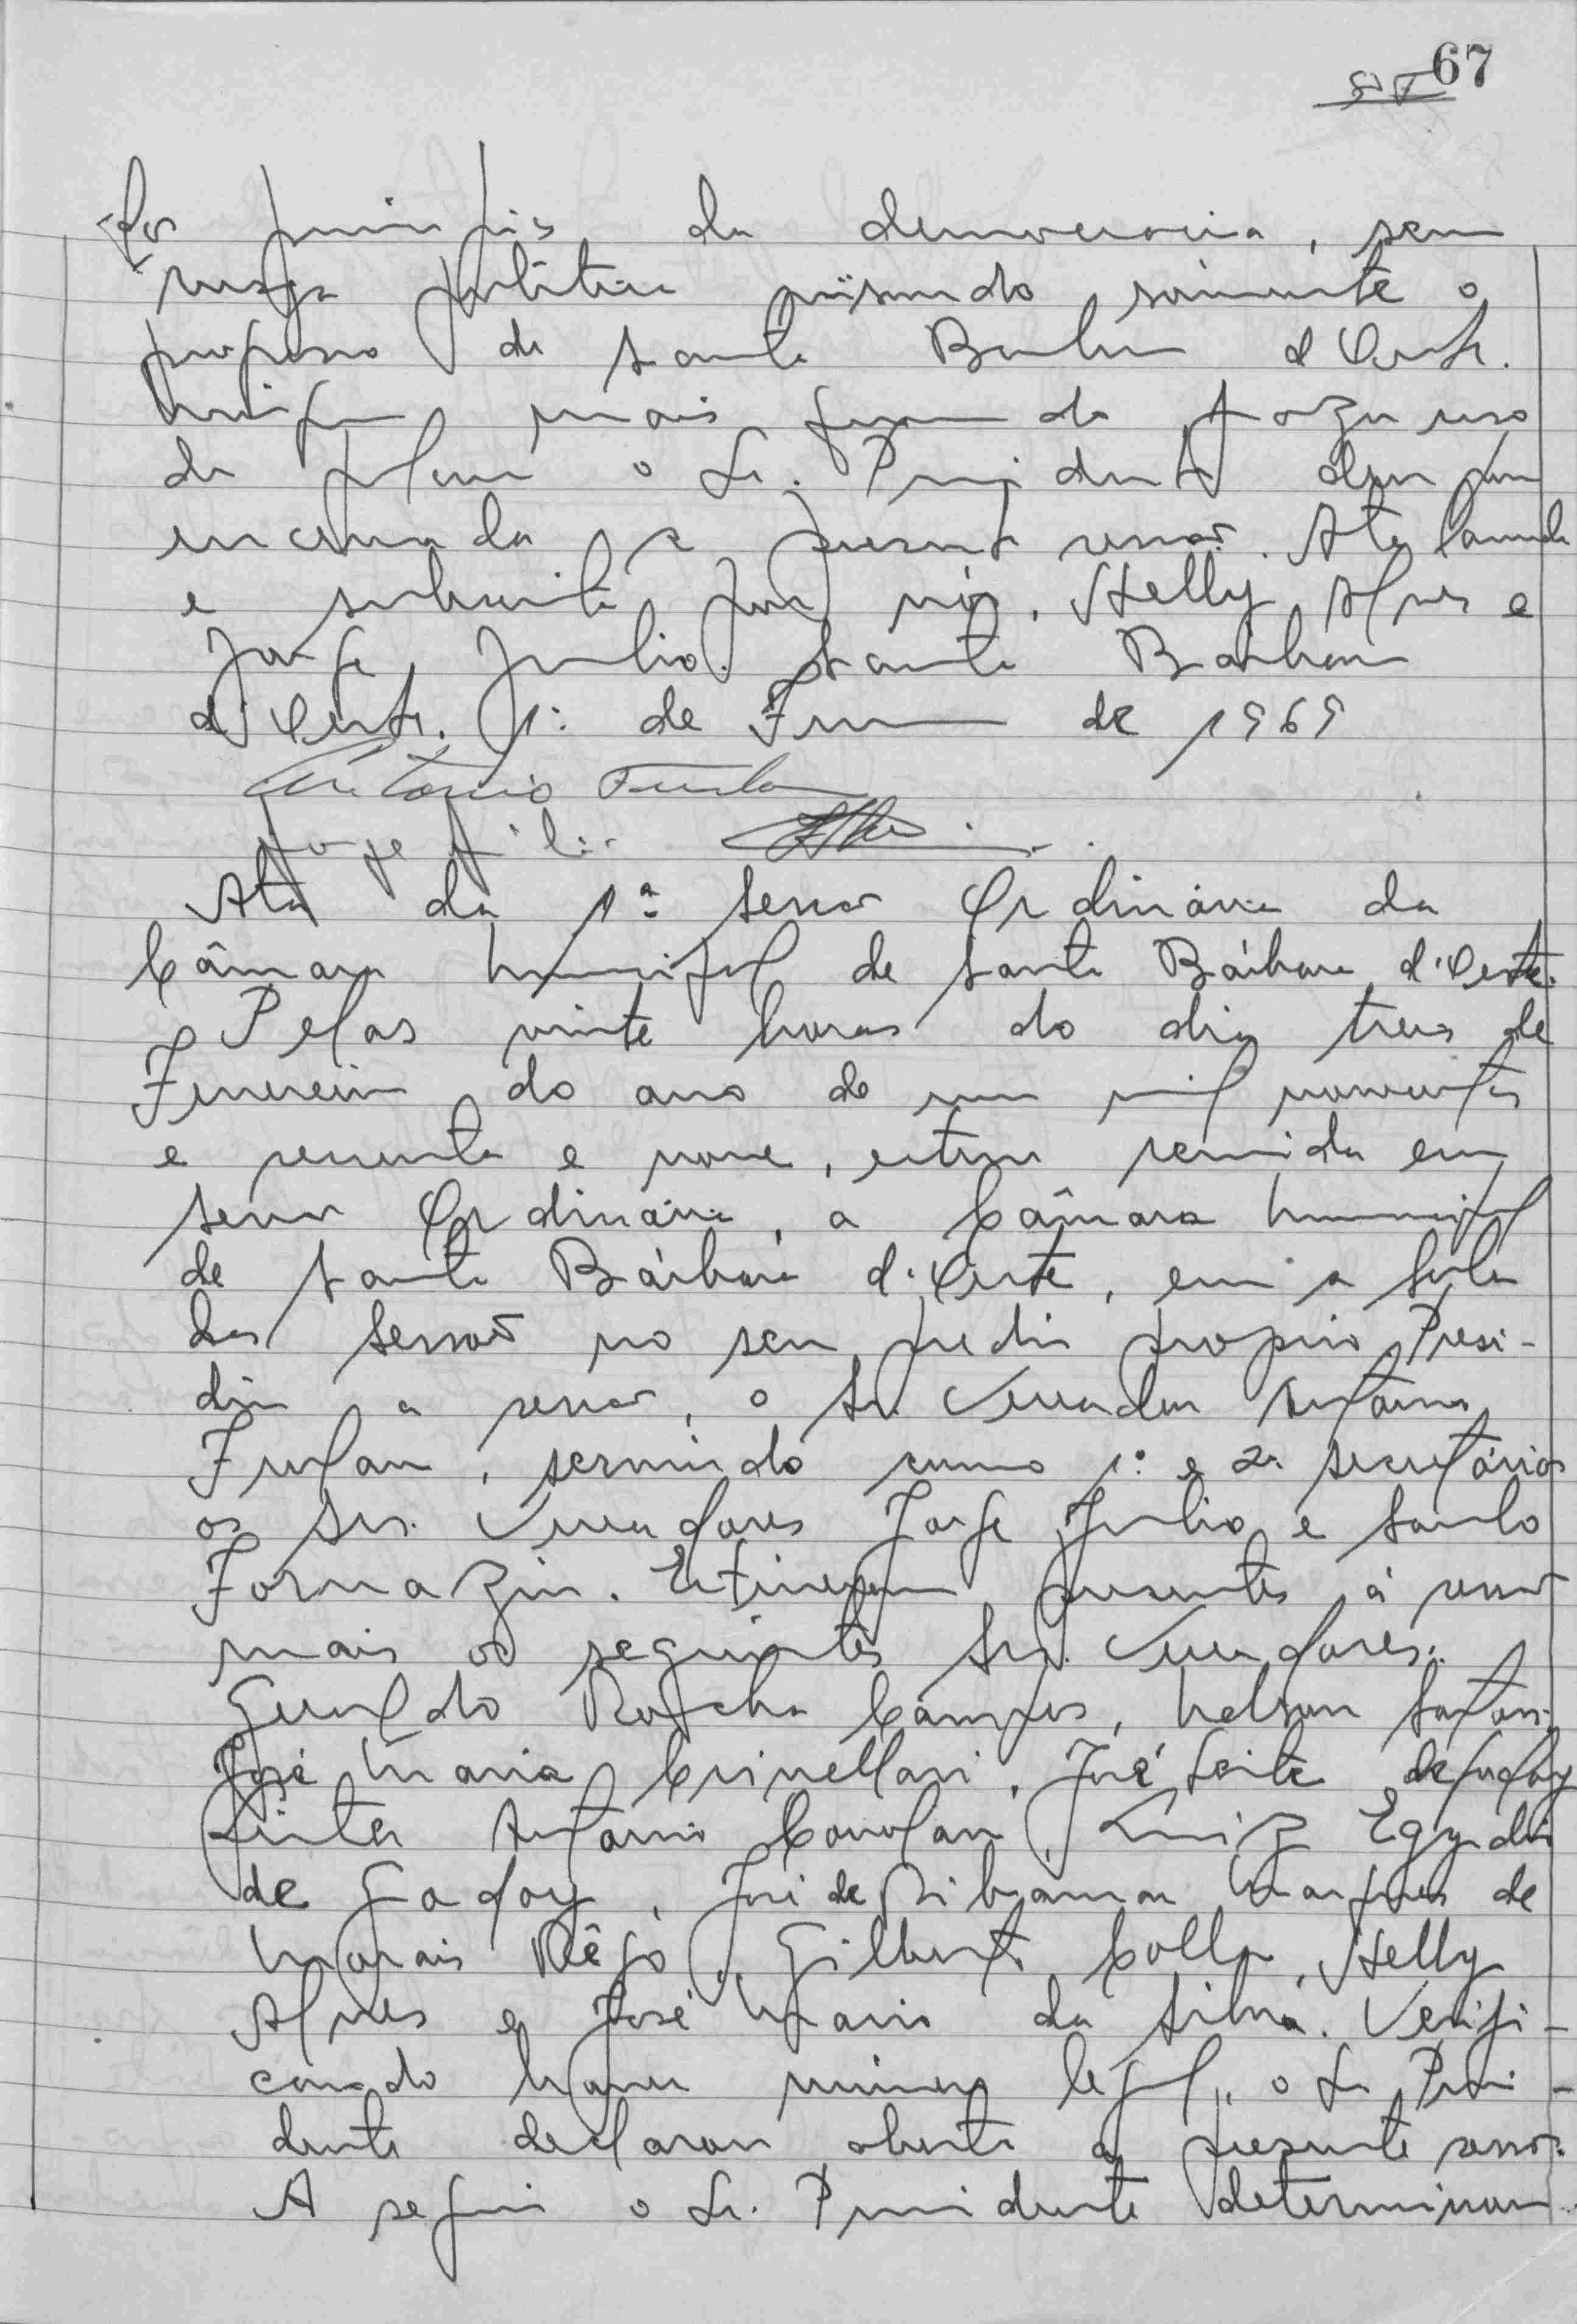 67
dos principios da democracia, sem
magoa politica visando somente o
progresso de Santa Barbara d'Oeste.
Ninguem mais fazendo fazer uso
da palavra o Sr. Presidente deu por
encerrada a presente sessão. Ata lavrada
e subscrita por nós, Helly Alves e
Jorge Julio. Santa Bárbara
d'Oeste. 1º de Fevereiro de 1969
Antonio Furlan
Jorge Júlio
Ata da 1ª Sessão Ordinária da
Câmara Municipal de Santa Bárbara d'Oeste.
Pelas vinte horas do dia treis de
Fevereiro do ano de um mil novecentos
e sessenta e nove, esteve reunida em
sessão Ordinária, a Câmara Municipal
de Santa Bárbara d'Oeste, em a Sala
das Sessão no seu predio proprio. Presi-
diu a sessão, o Sr. Vereador Antonio
Furlan, servindo como 1º e 2º secretários
os Srs. Vereadores Jorge Julio e Saulo
Fornazin. Estiveram presentes à sessão
mais os seguintes Srs. Vereadores:
Geraldo Rocha Campos, Nelson
José Maria Crinellari, José Leite de Godoy
Antonio Carolan, Luiz Egydio
de Godoy, José de Ribamar Marques de
Morais Rêgo, Gilberto Colla, Helly
Alves e José Maria da Silva. Verifi-
cando haver número legal, o Sr. Presi-
dente declarou aberta a presente sessão.
A seguir o Sr. Presidente determinou